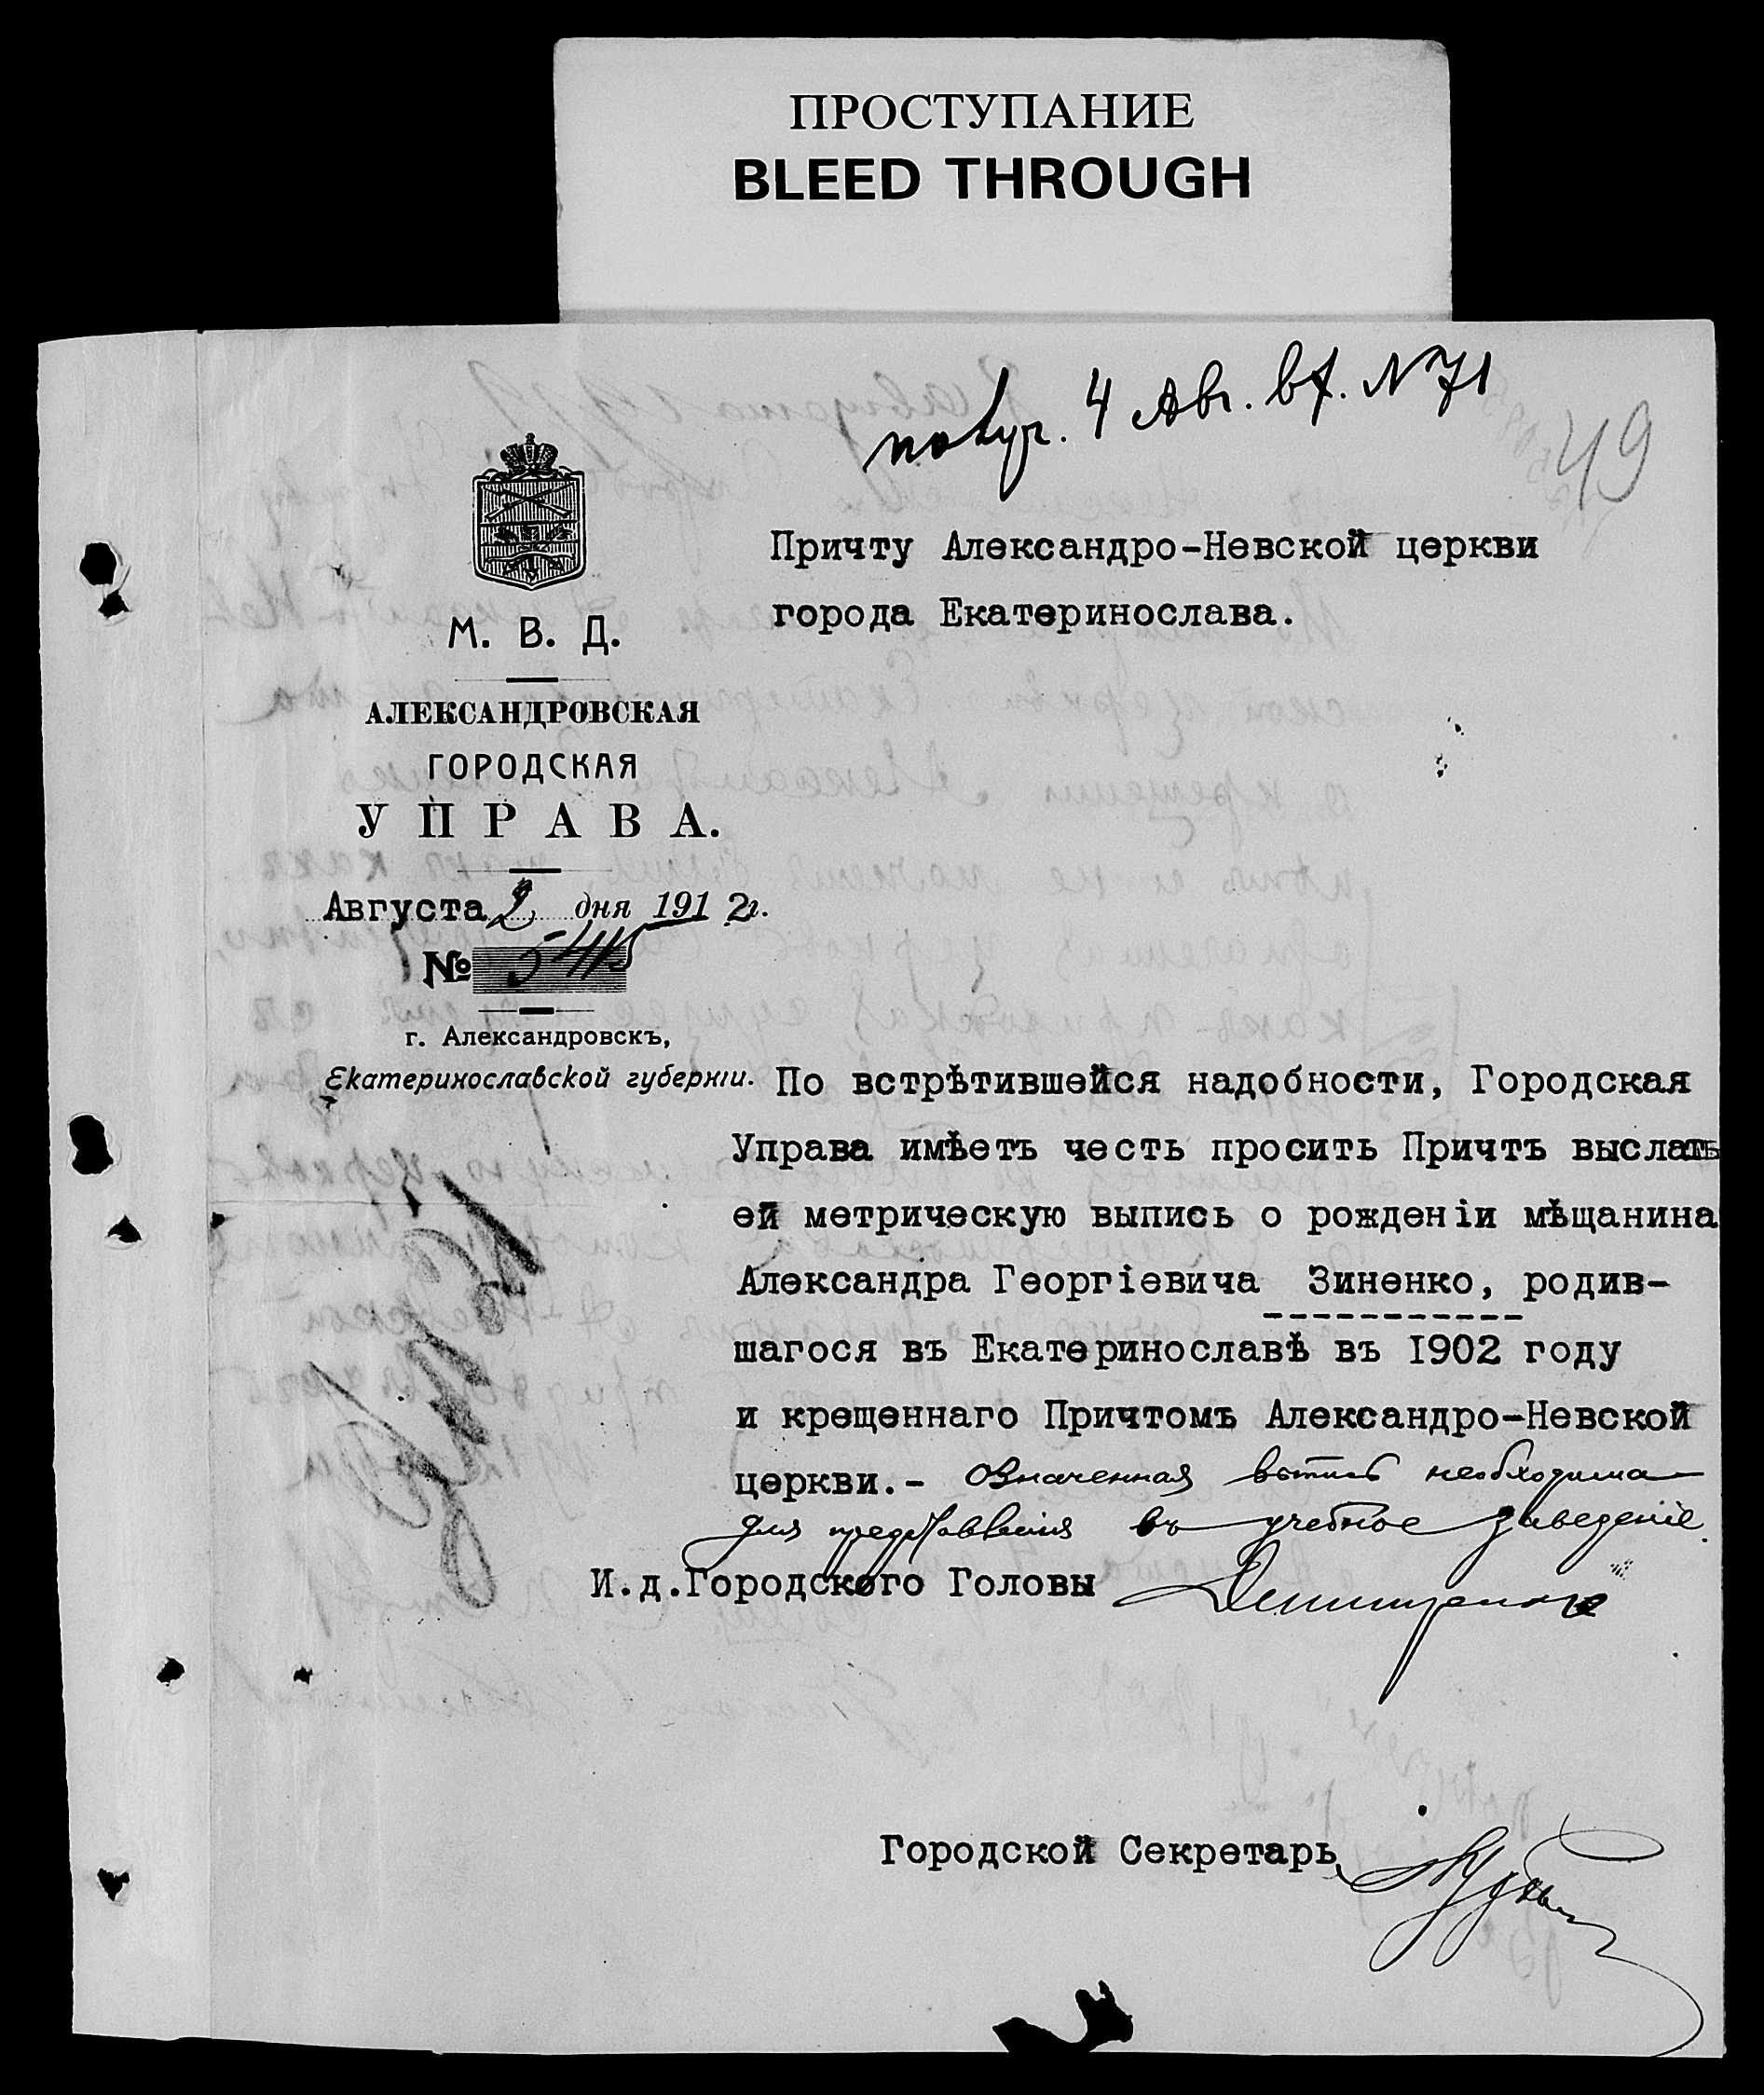 ПРОСТУПАНИЕ
BLEED THROUGH
получ. 4 Авг. вх. N 71
49
Причту Александро-Невской церкви
города Екатеринослава.
М. В. Д.
АЛЕКСАНДРОВСКАЯ
ГОРОДСКАЯ
УПРАВА.
Августа 2 дня 1912 г.
№ 5415
г. Александровскъ,
Екатеринославской губерніи.
По встрѣтившейся надобности, Городская
Управа имѣетъ честь просить Причтъ выслать
ей метрическую выпись о рожденіи мѣщанина
Александра Георгіевича Зиненко, родив-
шагося въ Екатеринославѣ въ 1902 году
и крещеннаго Причтомъ Александро-Невской
церкви.- Означенная выпись необходима
для представленія въ учебное заведеніе.
И.д.Городского Головы
Городской Секретарь